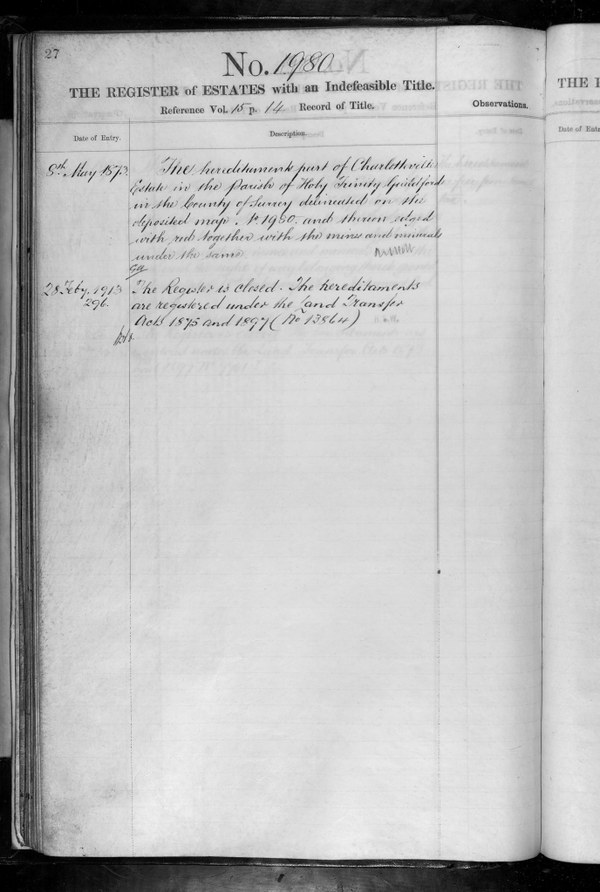 27
No. 1980
THE REGISTER of ESTATES with an Indefeasible Title.
Reference Vol. 15 p. 14 Record of Title.
Observations.
Date of Entry.
Description.
8th May 1873.
The hereditaments part of Charlottville
Estate in the Parish of Holy Trinity Guildford
in the County of Surrey delineated on the
deposited map No 1980 and thereon edged
with red together with the mines and minerals
under the same
28 Feby. 1913
296.
The Register is closed. The hereditaments
are registered under the Land Transfer
Acts 1875 and 1897 (No 13864)
THE R
Date of Entr